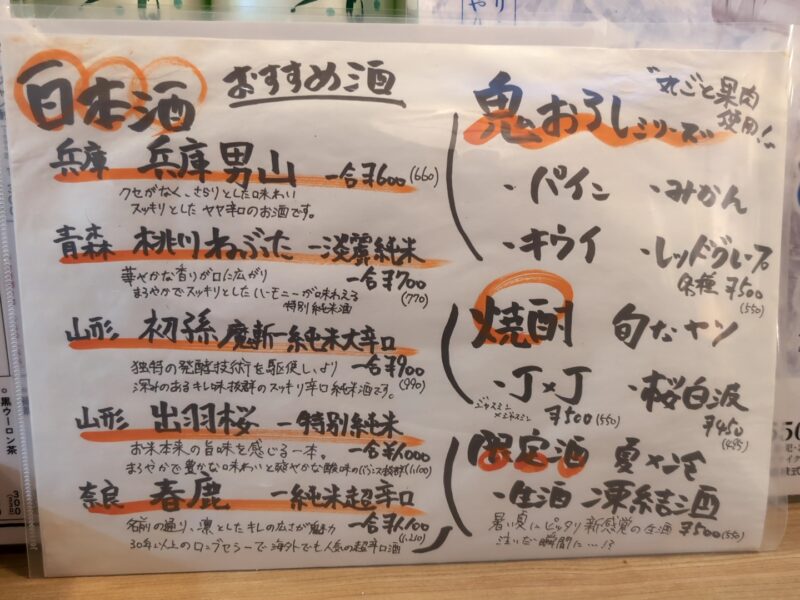 日本酒 おすすめ酒
兵庫 兵庫男山 一合¥600 (660)
クセがなく、さらりとした味わい
スッキリとした ヤヤ辛口のお酒です。
青森 桃川ねぶた 一淡麗純米
華やかな香りが口に広がり 一合¥700
まろやかでスッキリとしたハーモニーが味わえる (770)
特別純米酒
山形 初孫 魔斬 一純米大辛口
独特の発酵技術を駆使し、より 一合¥900
深みのあるキレ味抜群のスッキリ辛口純米酒です。 (990)
山形 出羽桜 一特別純米
お米本来の旨味を感じる一本。 一合¥1000
まろやかで豊かな味わいと爽やかな酸味のバランス抜群 (1,100)
奈良 春鹿 一純米超辛口
名前の通り、凛としたキレの良さが魅力 一合¥1,100
30年以上のロングセラーで海外でも人気の超辛口酒 (1,210)
鬼おろしシリーズ
"丸ごと果肉
使用!"
・パイン ・みかん
・キウイ ・レッドグレープ
各種¥500
(550)
焼酎 旬だヤン
・J×J ・桜白波
ジャスミン×ジャスミン ¥500 (550) ¥450
(495)
限定酒 夏×冷
・生酒 凍結酒
暑い夏にピッタリ 新感覚の生酒 ¥500 (550)
注いだ瞬間に…!?
黒ウーロン茶
300